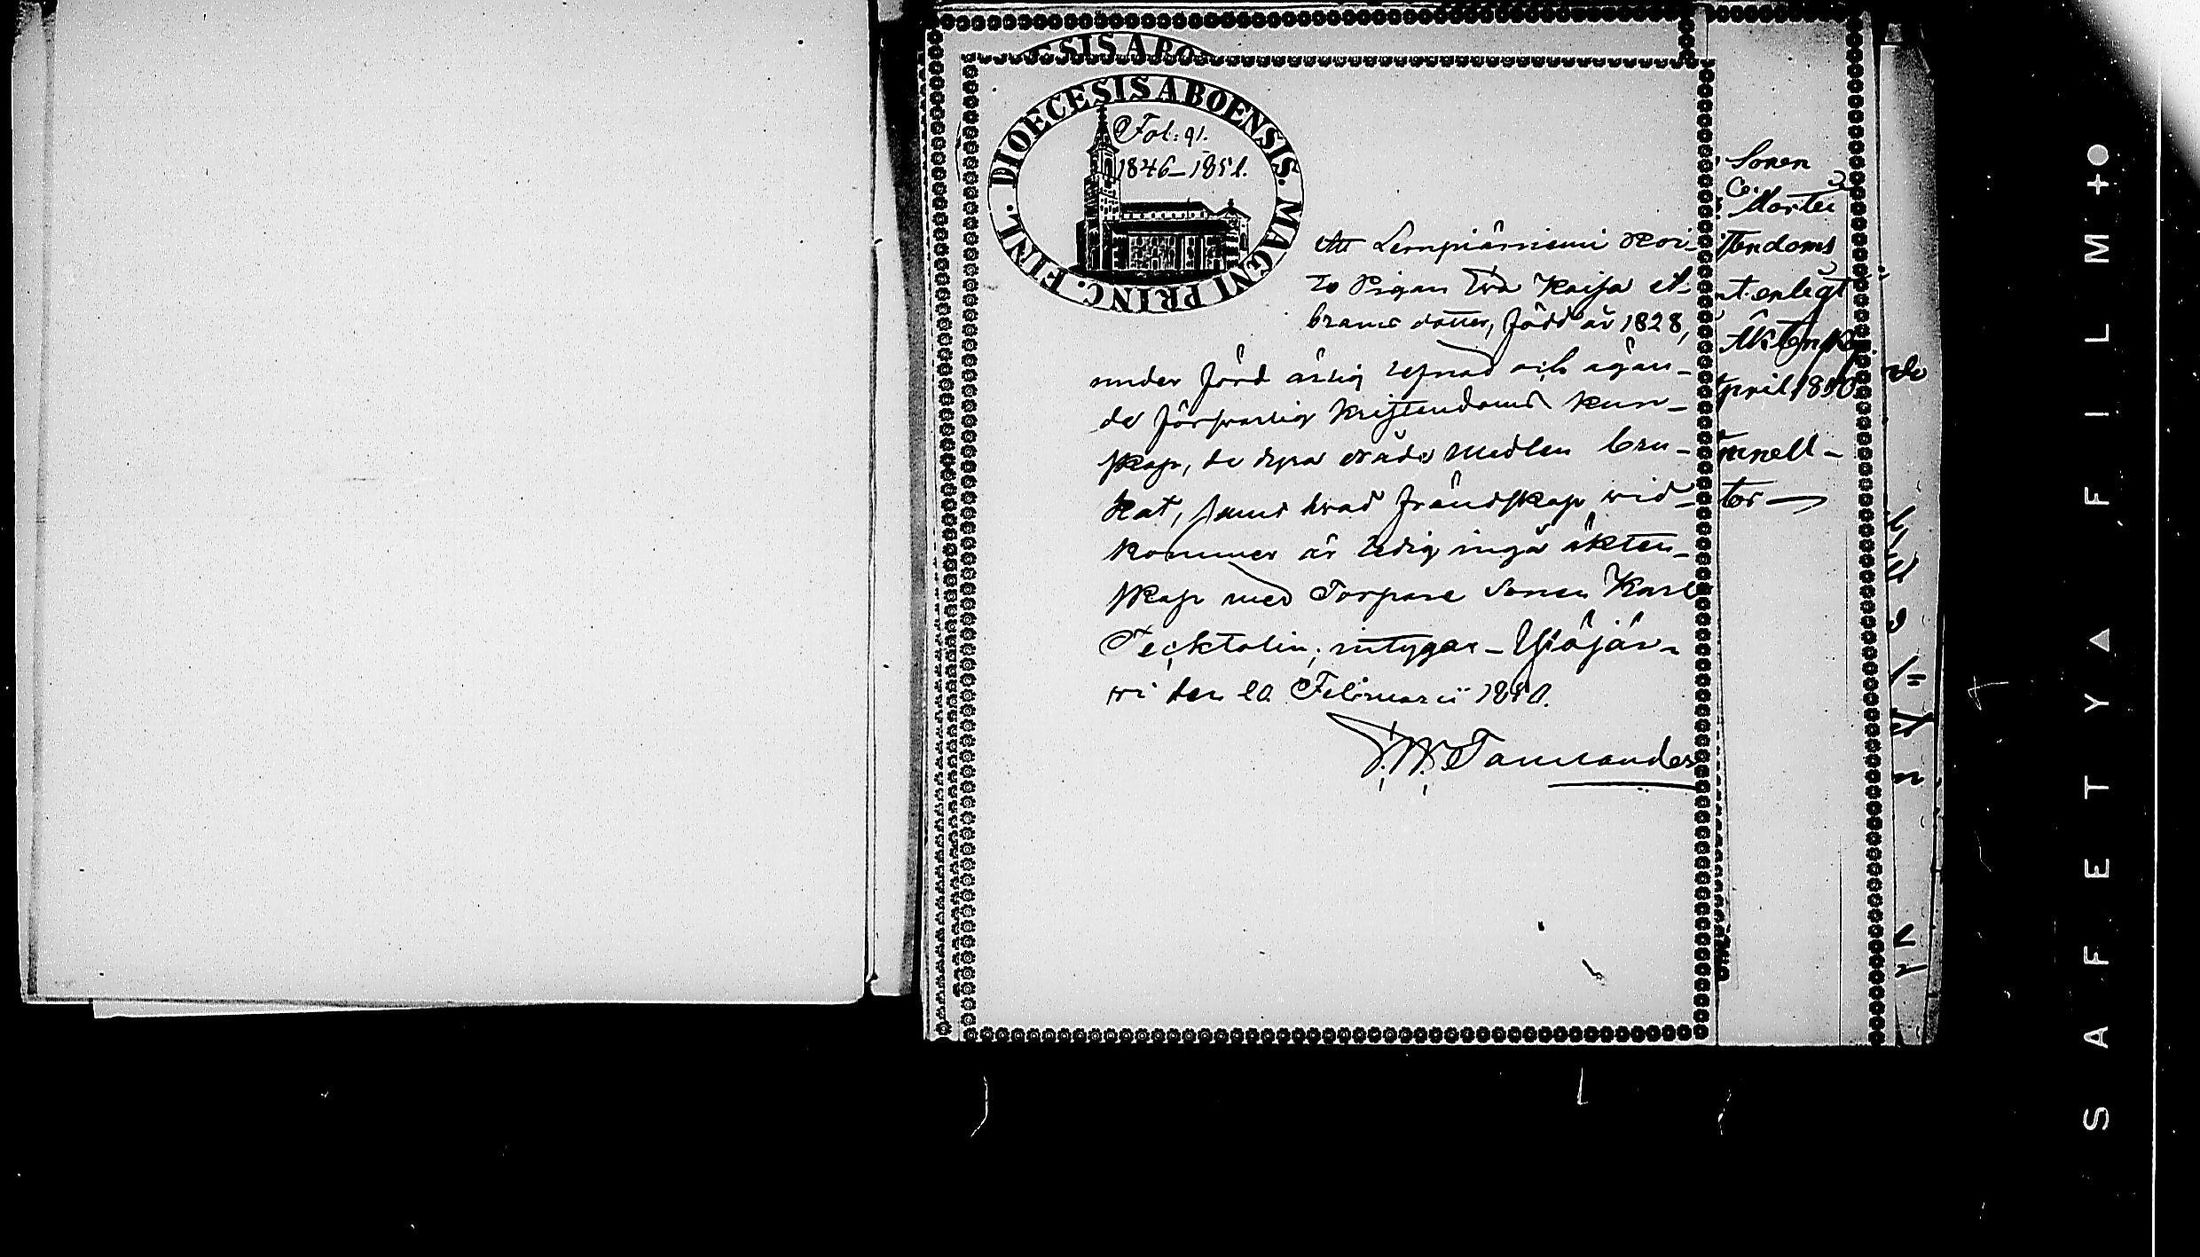 ESIS ABO
DIOECESIS ABOENSIS. MAGNI PRINC. FINL.
Fol: 91.
1846–1851.
Att Lempiäniemi Koi-
to Pigan Eva Kaisa A-
brams dotter, född år 1828,
under förd ärlig lefnad och ägan-
de förswarlig Kristendoms kun-
skap, de dyra Nåde Medlen bru-
kat, samt hvad frändskap wid-
kommer är ledig ingå äkten-
skap med Torpare Sonen Karl
Tecktolin, intygar – Ylöjär-
wi den 20 Februarii 1850.
F. W. Tammander
Sonen
Mårte
stendoms
nt enlegt
Äktensk
April 1850
mnell –
tor
de
SAFETY FILM